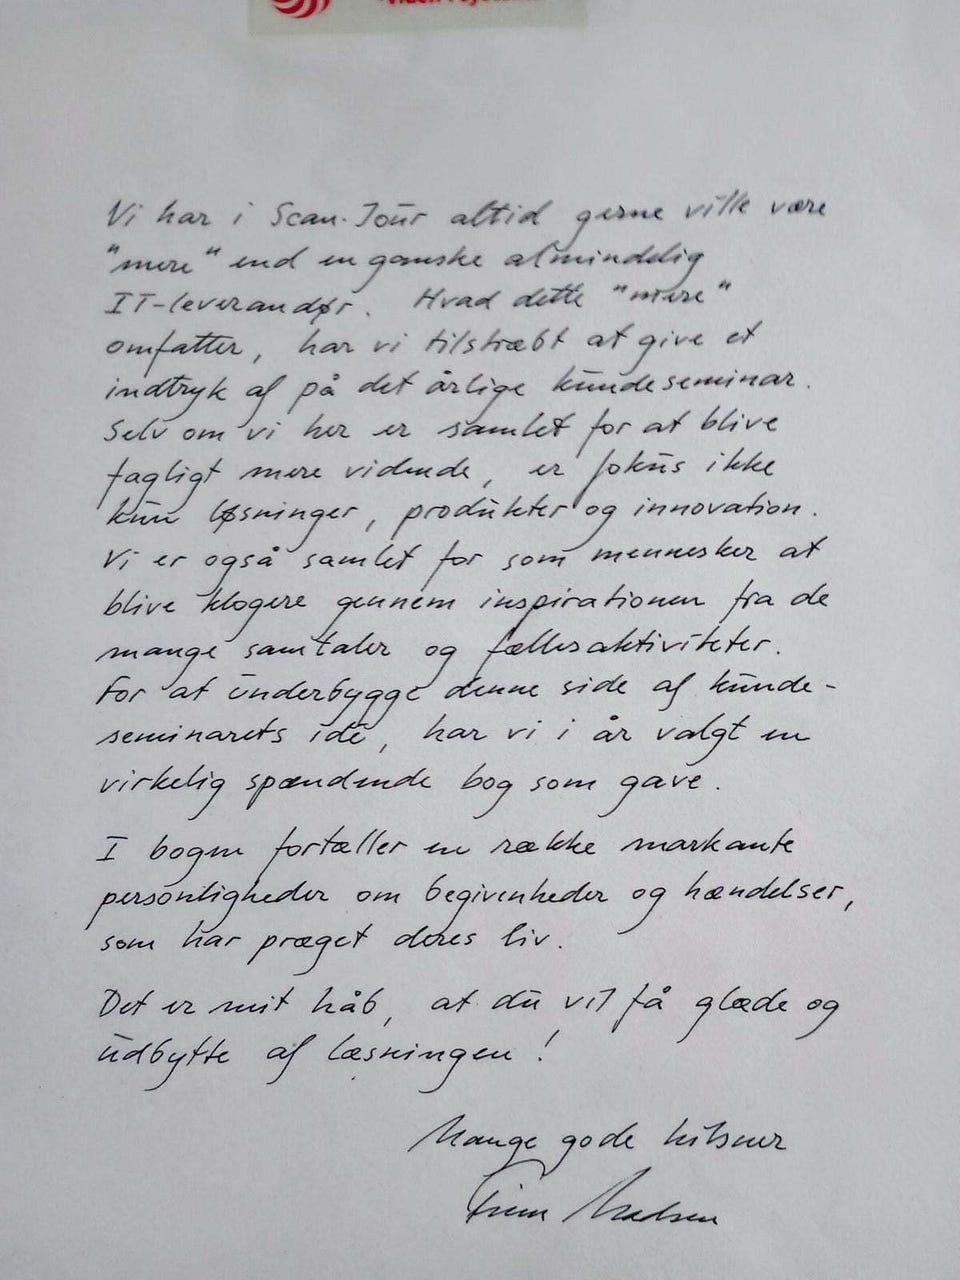 Vi har i Scan·Jour altid gerne ville være
"mere" end en ganske almindelig
IT-leverandør. Hvad dette "mere"
omfatter, har vi tilstræbt at give et
indtryk af på det årlige kundeseminar.
Selv om vi her er samlet for at blive
fagligt mere vidende, er fokus ikke
kun løsninger, produkter og innovation.
Vi er også samlet for som mennesker at
blive klogere gennem inspirationen fra de
mange samtaler og fællesaktiviteter.
For at underbygge denne side af kunde-
seminarets idé, har vi i år valgt en
virkelig spændende bog som gave.
I bogen fortæller en række markante
personligheder om begivenheder og hændelser,
som har præget deres liv.
Det er mit håb, at du vil få glæde og
udbytte af læsningen!
Mange gode hilsner
Finn Madsen